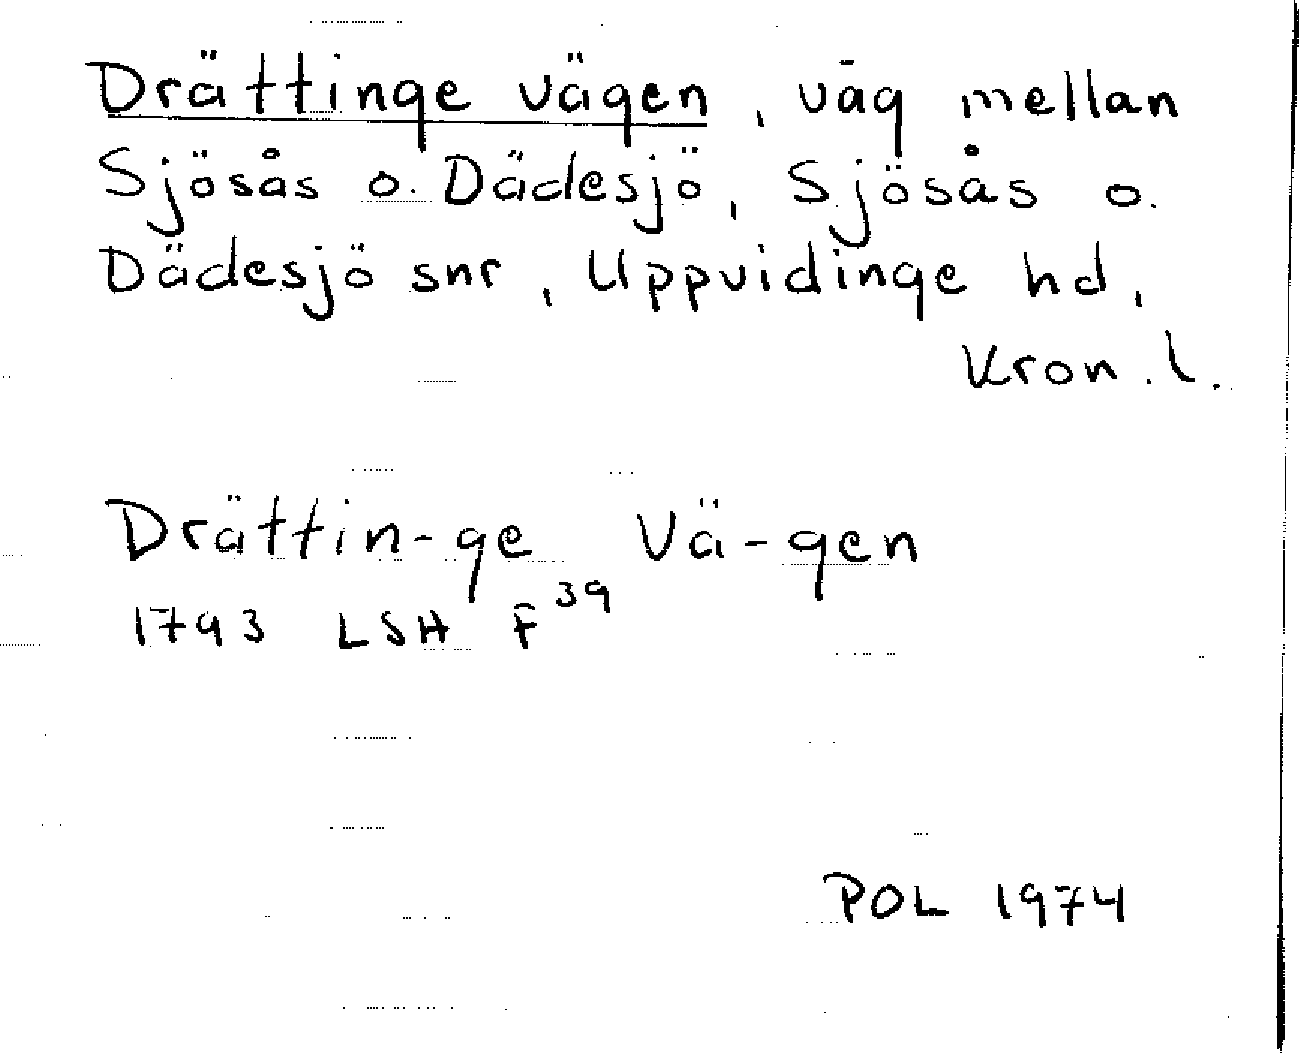 Drättinge vägen, väg mellan
Sjösås o. Dädesjö, Sjösås o.
Dädesjö snr, Uppvidinge hd,
Kron. l.
Drättin-ge Vä-gen
1793 LSH F 39
POL 1974